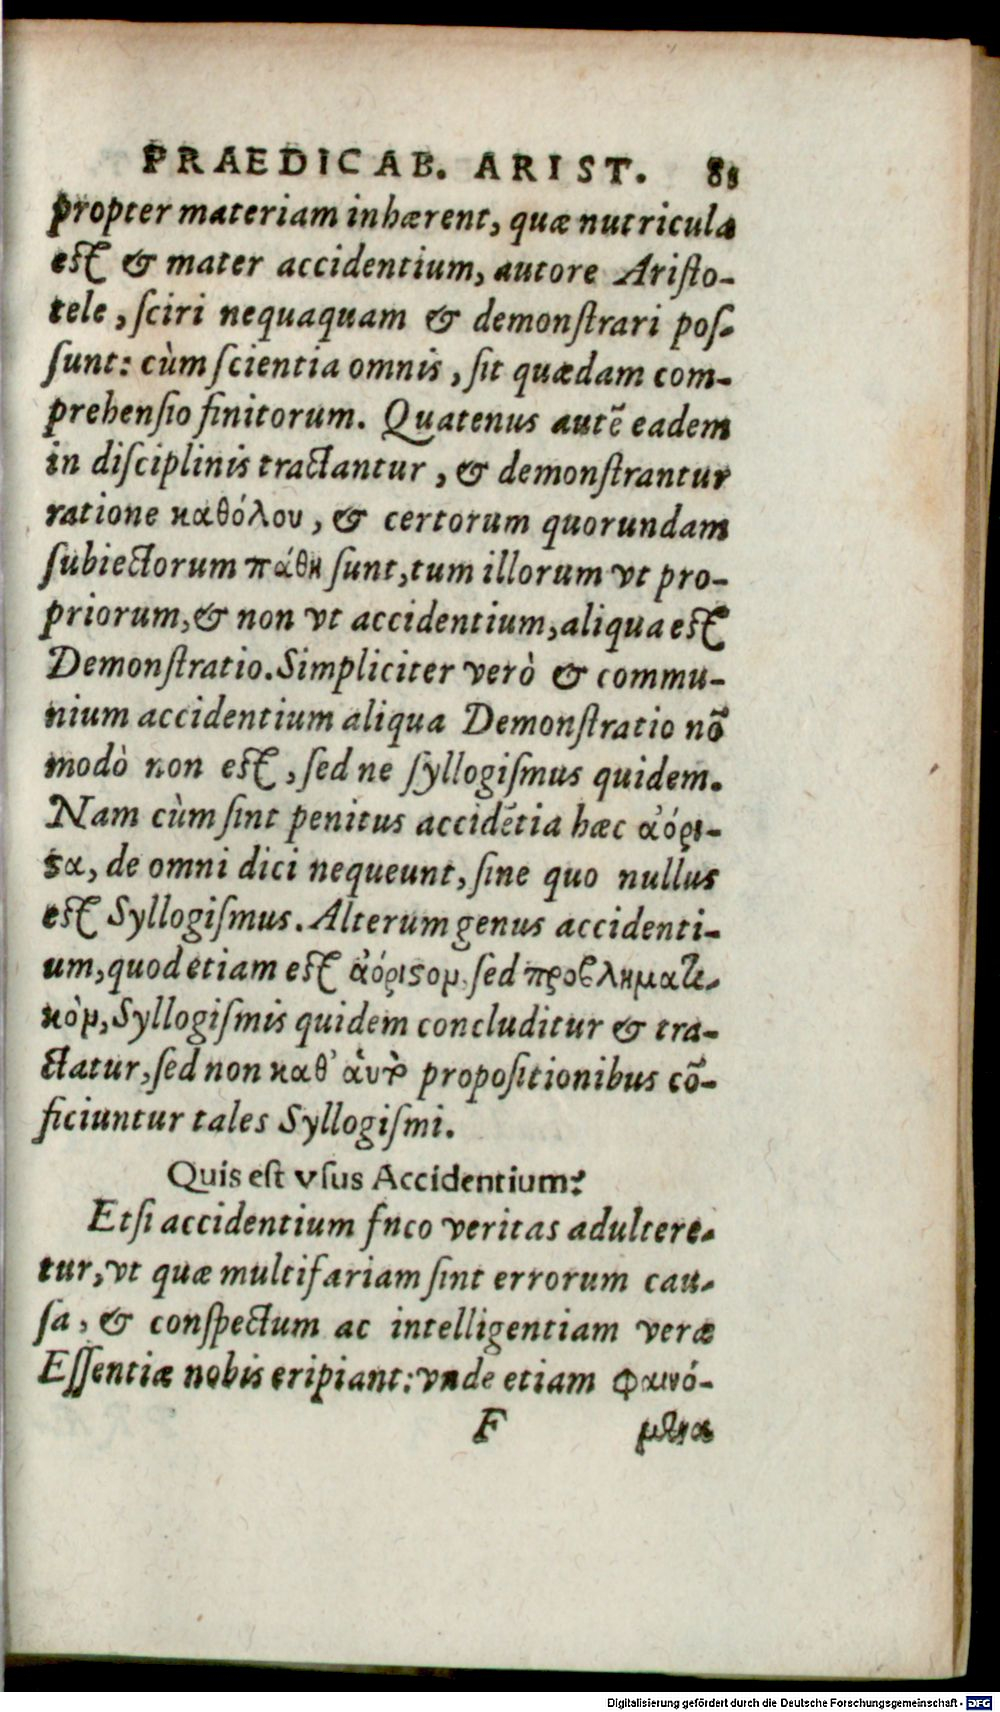 PRAEDICAB. ARIST. 81
propter materiam inhærent, quæ nutricula
eſt & mater accidentium, autore Ariſto-
tele, ſciri nequaquam & demonſtrari poſ-
ſunt: cùm ſcientia omnis, ſit quædam com-
prehenſio finitorum. Quatenus autẽ eadem
in diſciplinis tractantur, & demonſtrantur
ratione καθόλου, & certorum quorundam
ſubiectorum πάθη ſunt, tum illorum vt pro-
priorum, & non vt accidentium, aliqua eſt
Demonſtratio. Simpliciter verò & commu-
nium accidentium aliqua Demonſtratio nõ
modò non eſt, ſed ne ſyllogiſmus quidem.
Nam cùm ſint penitus accidẽtia hæc ἀόρι-
ϛα, de omni dici nequeunt, ſine quo nullus
eſt Syllogiſmus. Alterum genus accidenti-
um, quod etiam eſt ἀόριϛομ, ſed προβληματι-
κὸμ, Syllogiſmis quidem concluditur & tra-
ctatur, ſed non καθ' ἁυτὸ propoſitionibus cõ-
ficiuntur tales Syllogiſmi.
Quis eſt vſus Accidentium?
Etſi accidentium fnco veritas adultere-
tur, vt quæ multifariam ſint errorum cau-
ſa, & conſpectum ac intelligentiam veræ
Eſſentiæ nobis eripiant: vnde etiam φαινό-
F μενα
Digitalisierung gefördert durch die Deutsche Forschungsgemeinschaft - DFG